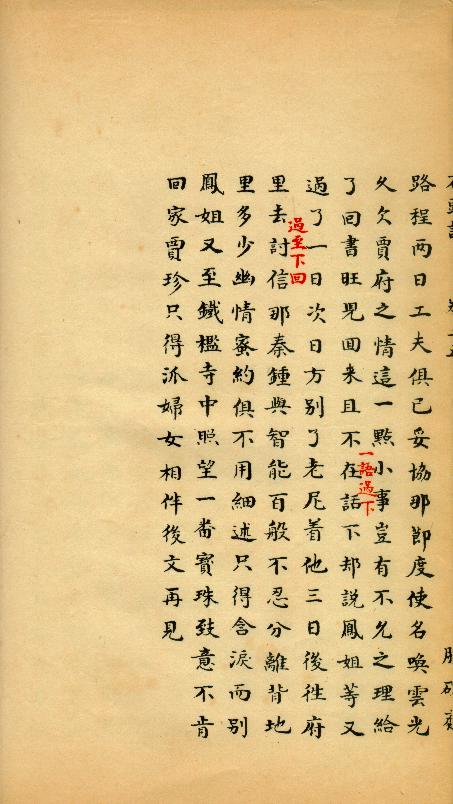 路程两日工夫俱已妥協那節度使名喚雲光
久欠賈府之情這一點小事豈有不允之理給
了回書旺児回来且不在話下却説鳳姐等又
一語過下
過了一日次日方别了老尼着他三日後徃府
里去討信那秦鍾與智能百般不忍分離背地
過至下回
里多少幽情蜜約俱不用細述只得含淚而别
鳳姐又至鐵檻寺中照望一番寳珠致意不肯
回家賈珍只得派婦女相伴後文再見